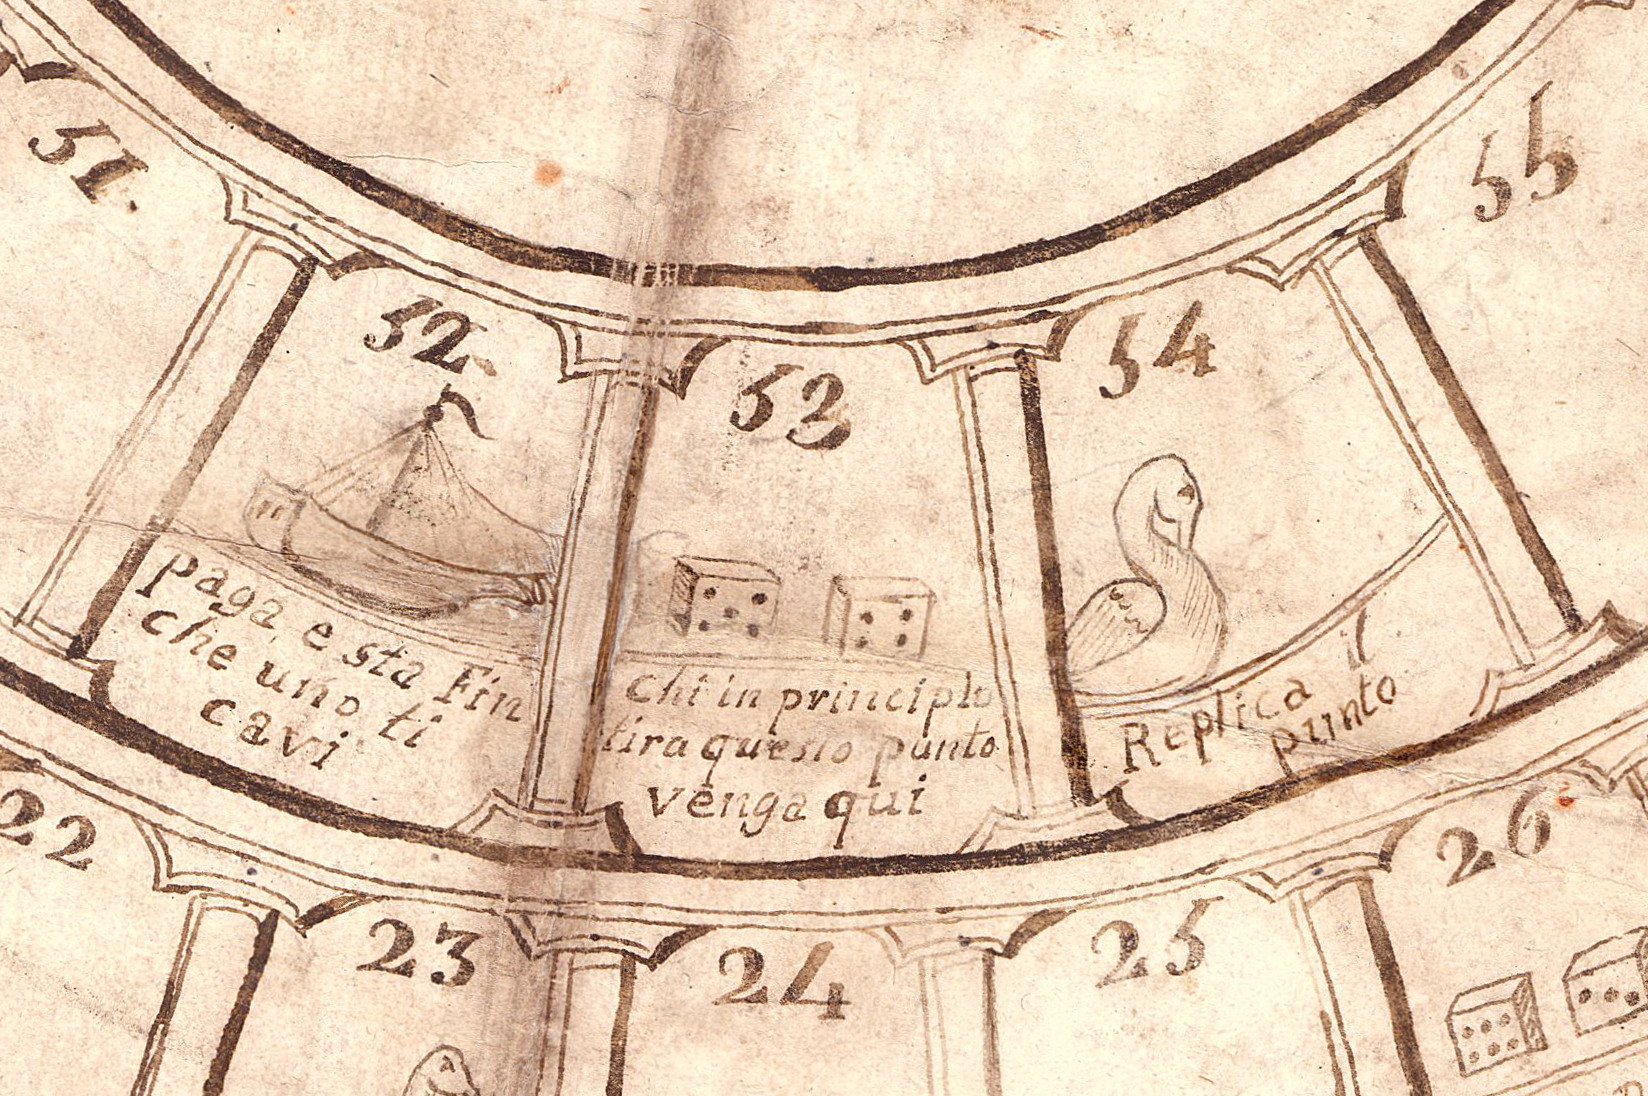 51.
52
53
54
55
paga, e sta Fin
che uno ti
cavi
Chi in principio
tira questo punto
venga qui
Replica il
punto
22
23
24
25
26